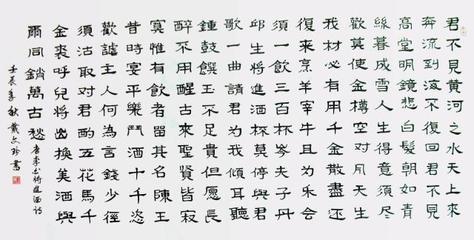 君不見黄河之水天上來
奔流到海不復回君不見
高堂明鏡悲白髮朝如青
絲暮成雪人生得意須尽
歡莫使金樽空對月天生
我材必有用千金散盡还
復來烹羊宰牛且為乐會
須一飲三百杯岑夫子丹
邱生將進酒杯莫停與君
歌一曲請君為我傾耳聽
鐘鼓饌玉不足貴但愿長
醉不用醒古來聖賢皆寂
寞惟有飲者留其名陳王
昔時宴平樂鬥酒十千恣
歡謔主人何為言錢少徑
須沽取對君酌五花馬千
金裘呼兒將出換美酒與
爾同銷萬古愁 唐李白將進酒詩
壬辰季秋戴文書